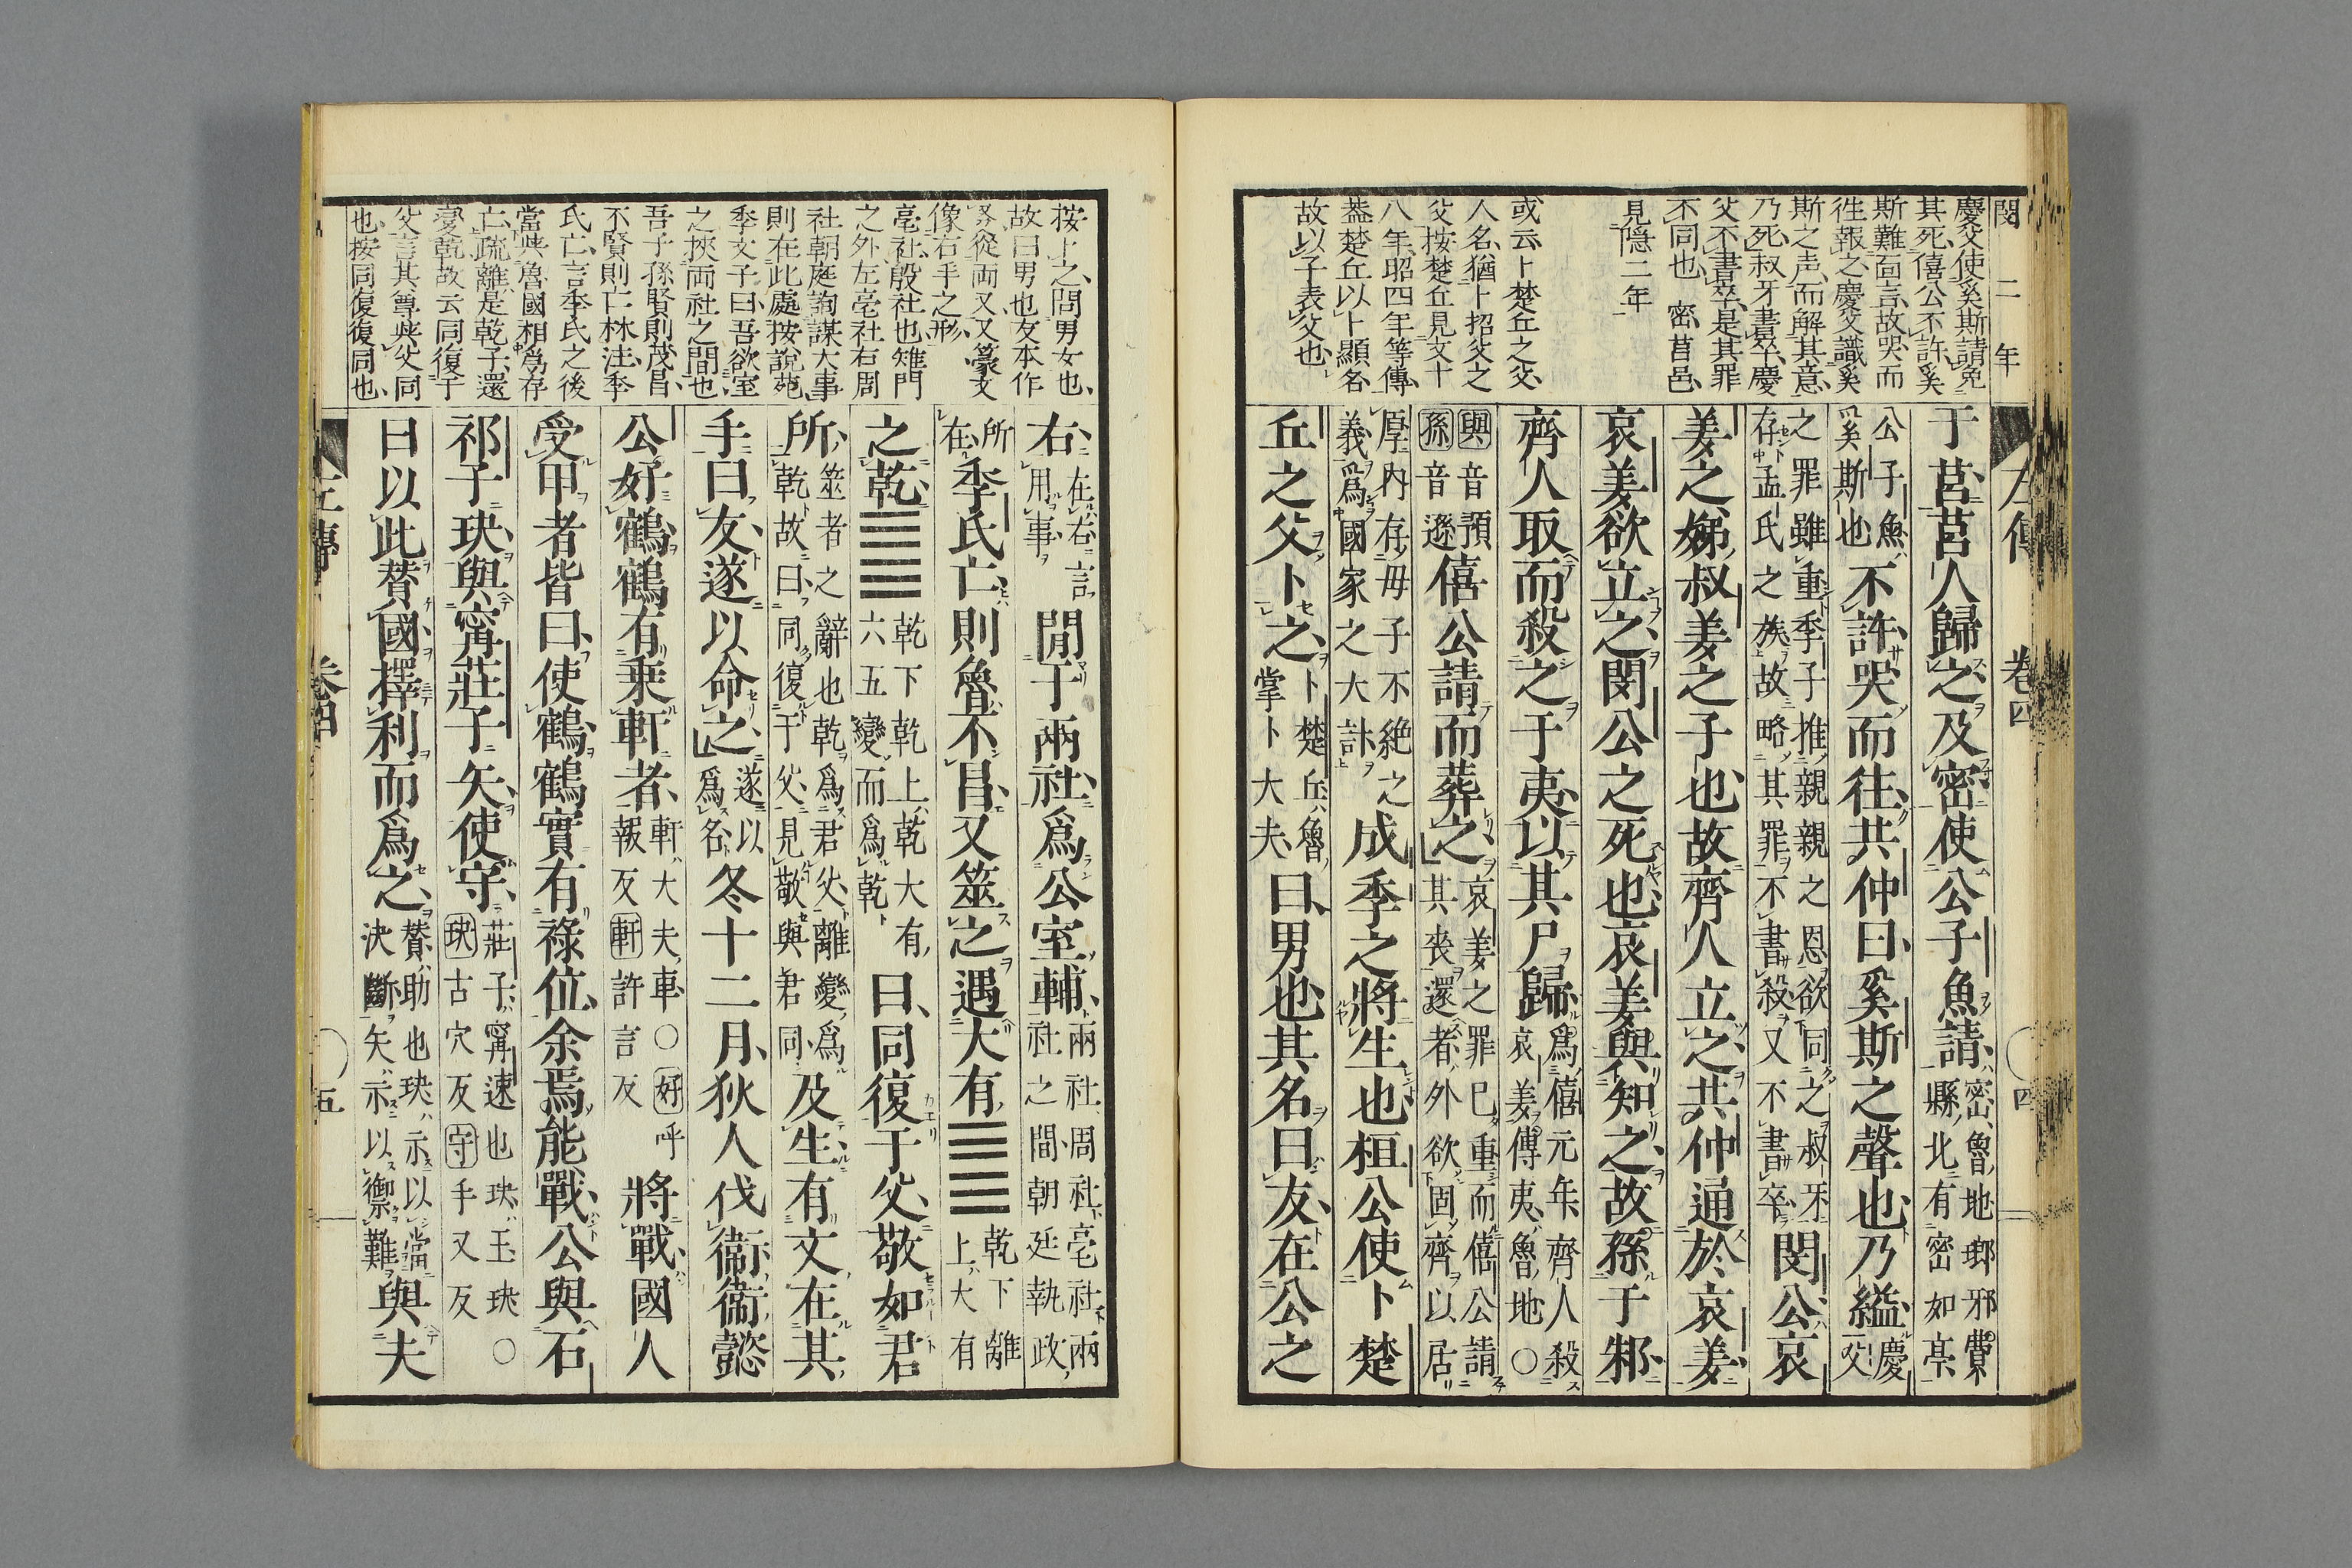 閔二年
慶父使奚斯請免
其死僖公不許奚
斯難面言故哭而
徃報之慶父識奚
斯之声而解其意
乃死叔牙書卒慶
父不書卒是其罪
不同也　密莒邑
見隱二年
或云卜楚丘之父
人名猶卜招父之
父按楚丘見文十
八年昭四年等傳
蓋楚丘以卜顯名
故以子表父也
左傳　卷四　四
于莒莒人歸之及密使公子魚請密魯地琅邪費縣北有密如亭
公子魚奚斯也不許哭而往共仲曰奚斯之聲也乃縊慶父
之罪雖重季子推親親之恩欲同之叔牙存孟氏之族故略其罪不書殺又不書卒閔公哀
姜之娣叔姜之子也故齊人立之共仲通於哀姜
哀姜欲立之閔公之死也哀姜與知之故孫于邾
齊人取而殺之于夷以其尸歸爲僖元年齊人殺哀姜傳夷魯地○
與音預孫音遜僖公請而葬之哀姜之罪已重而僖公請其喪還者外欲固齊以居
厚内存母子不絶之義爲國家之大計成季之將生也桓公使卜楚
丘之父卜之卜楚丘魯掌卜大夫曰男也其名曰友在公之
按上之問男女也
故曰男也友本作
㕛從両又又篆文
像右手之形
亳社殷社也雉門
之外左亳社右周
社朝庭詢謀大事
則在此處按說苑
季文子曰吾欲室
之挾両社之間也
吾子孫賢則茂昌
不賢則亡林注季
氏亡言季氏之後
當與魯國相爲存
亡疏離是乾子還
變乾故云同復于
父言其尊與父同
也按同復復同也
右在右言用事間于兩社爲公室輔兩社周社亳社兩社之間朝廷執政
所在季氏亡則魯不昌又筮之遇大有䷍乾下離上大有
之乾䷀乾下乾上乾大有六五變而爲乾曰同復于父敬如君
所筮者之辭也乾爲君父離變爲乾故曰同復于父見敬與君同及生有文在其
手曰友遂以命之遂以爲名冬十二月狄人伐衞衞懿
公好鶴鶴有乗軒者軒大夫車○好呼報反軒許言反將戰國人
受甲者皆曰使鶴鶴實有祿位余焉能戰公與石
祁子玦與甯莊子矢使守莊子甯速也玦玉玦○玦古穴反守手又反
曰以此賛國擇利而爲之賛助也玦示以當決斷矢示以禦難與夫
左傳　卷四　五